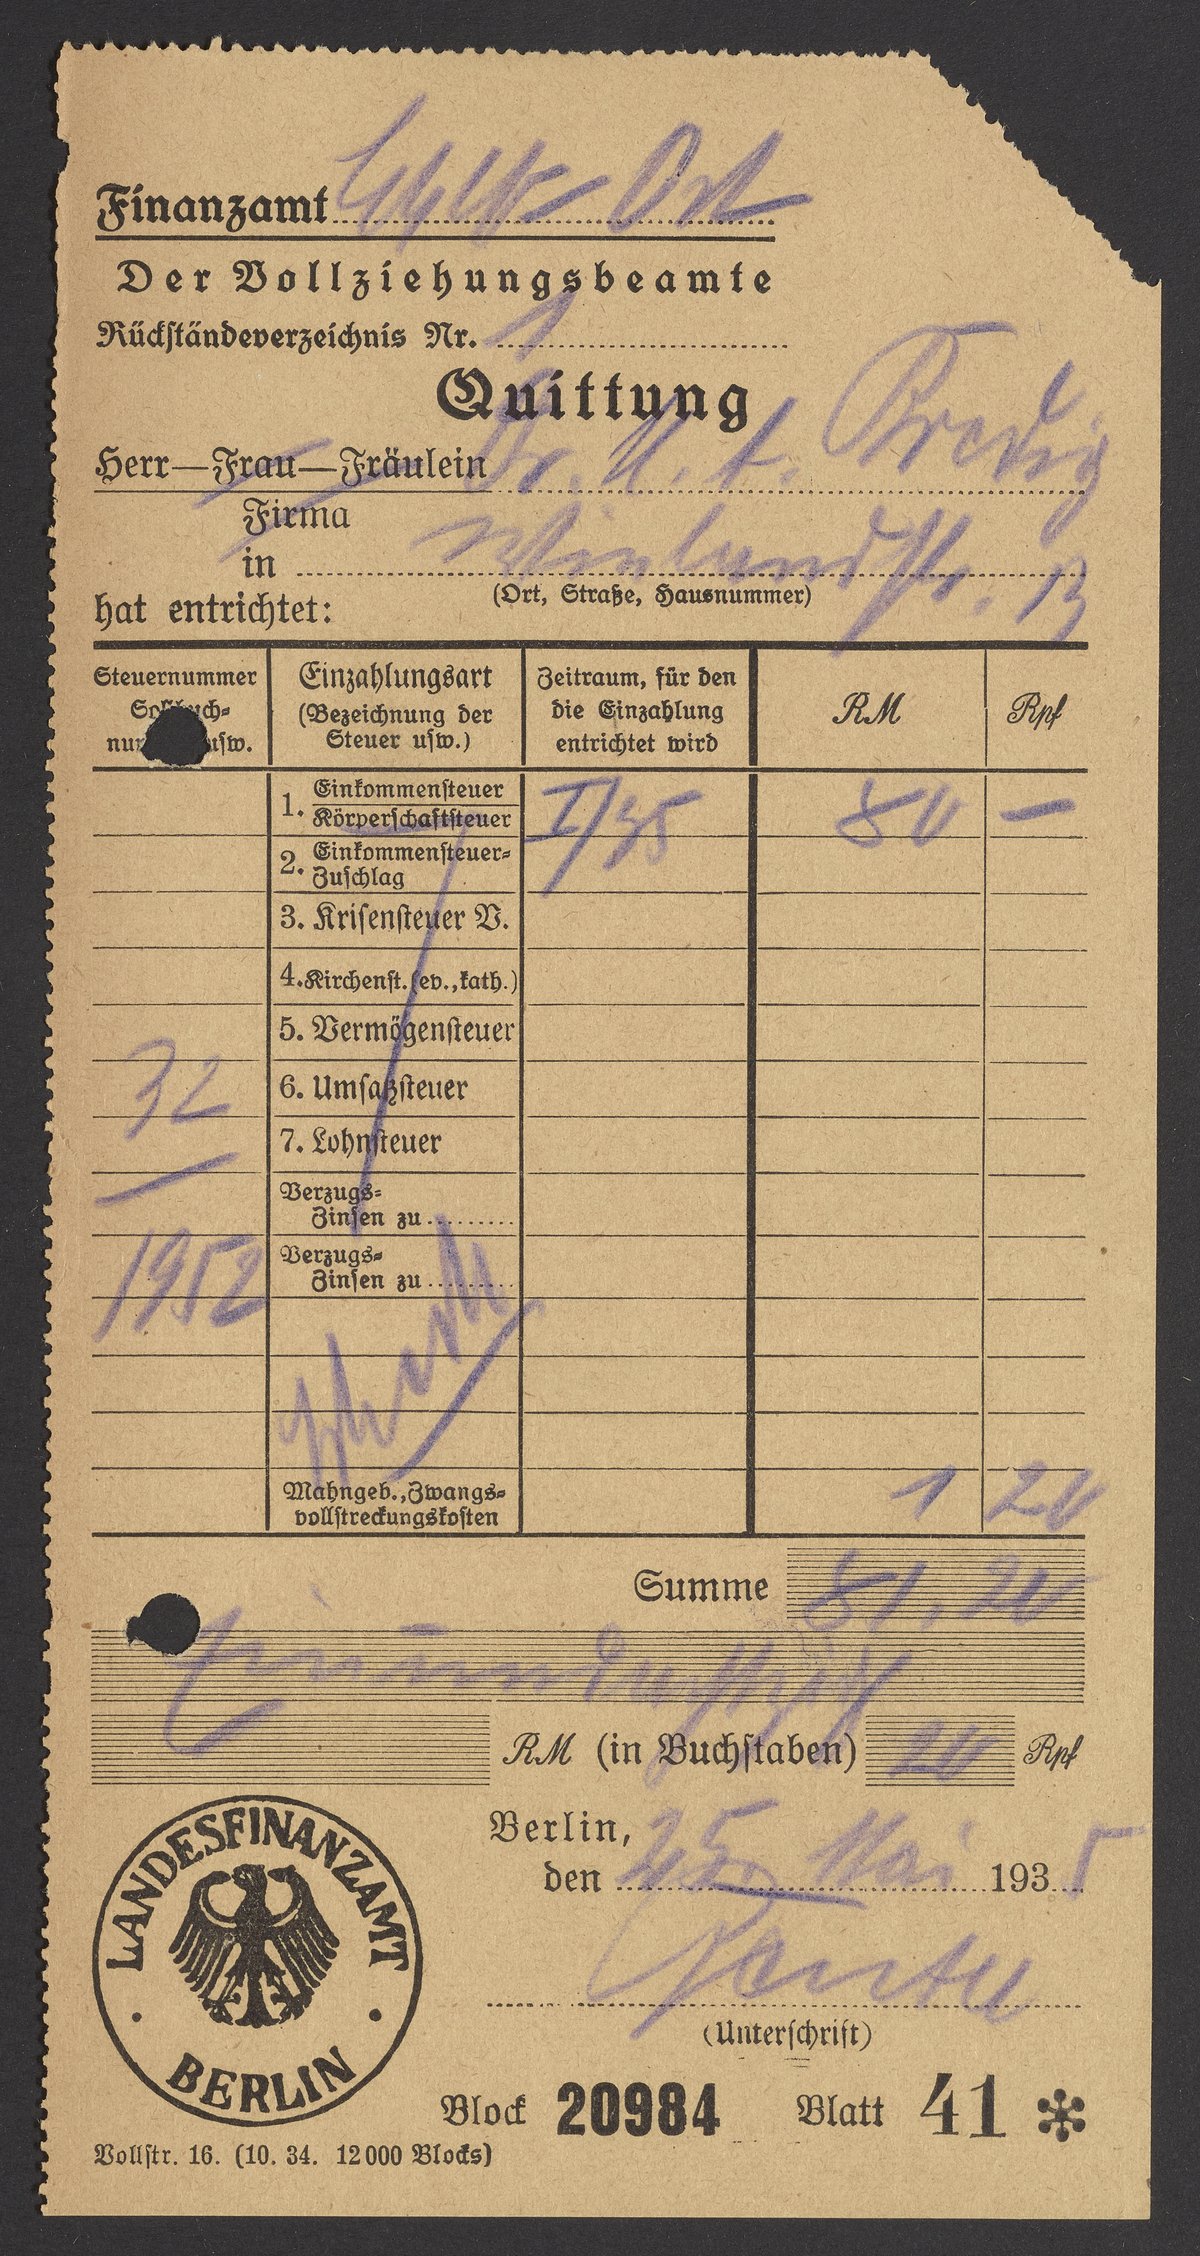 Finanzamt Ost
Der Vollziehungsbeamte
Rückständeverzeichnis Nr. 1
Quittung
Herr—Frau—Fräulein Dr.
Firma
in
(Ort, Straße, Hausnummer)
hat entrichtet:
Steuernummer Einzahlungsart Zeitraum, für den RM Rpf
(Bezeichnung der die Einzahlung
usw. Steuer usw.) entrichtet wird
1. Einkommensteuer I/35 80 —
Körperschaftsteuer
2. Einkommensteuer-
Zuschlag
3. Krisensteuer V.
4. Kirchenst. (ev., kath.)
5. Vermögensteuer
32 6. Umsatzsteuer
7. Lohnsteuer
Verzugs-
Zinsen zu
1952 Verzugs-
Zinsen zu
Mahngeb., Zwangs- 1 20
vollstreckungskosten
Summe 81,20
Einundachtzig
RM (in Buchstaben) 20 Rpf
LANDESFINANZAMT
BERLIN
Berlin,
den 25. Mai 1935
(Unterschrift)
Block 20984 Blatt 41 *
Vollstr. 16. (10. 34. 12 000 Blocks)